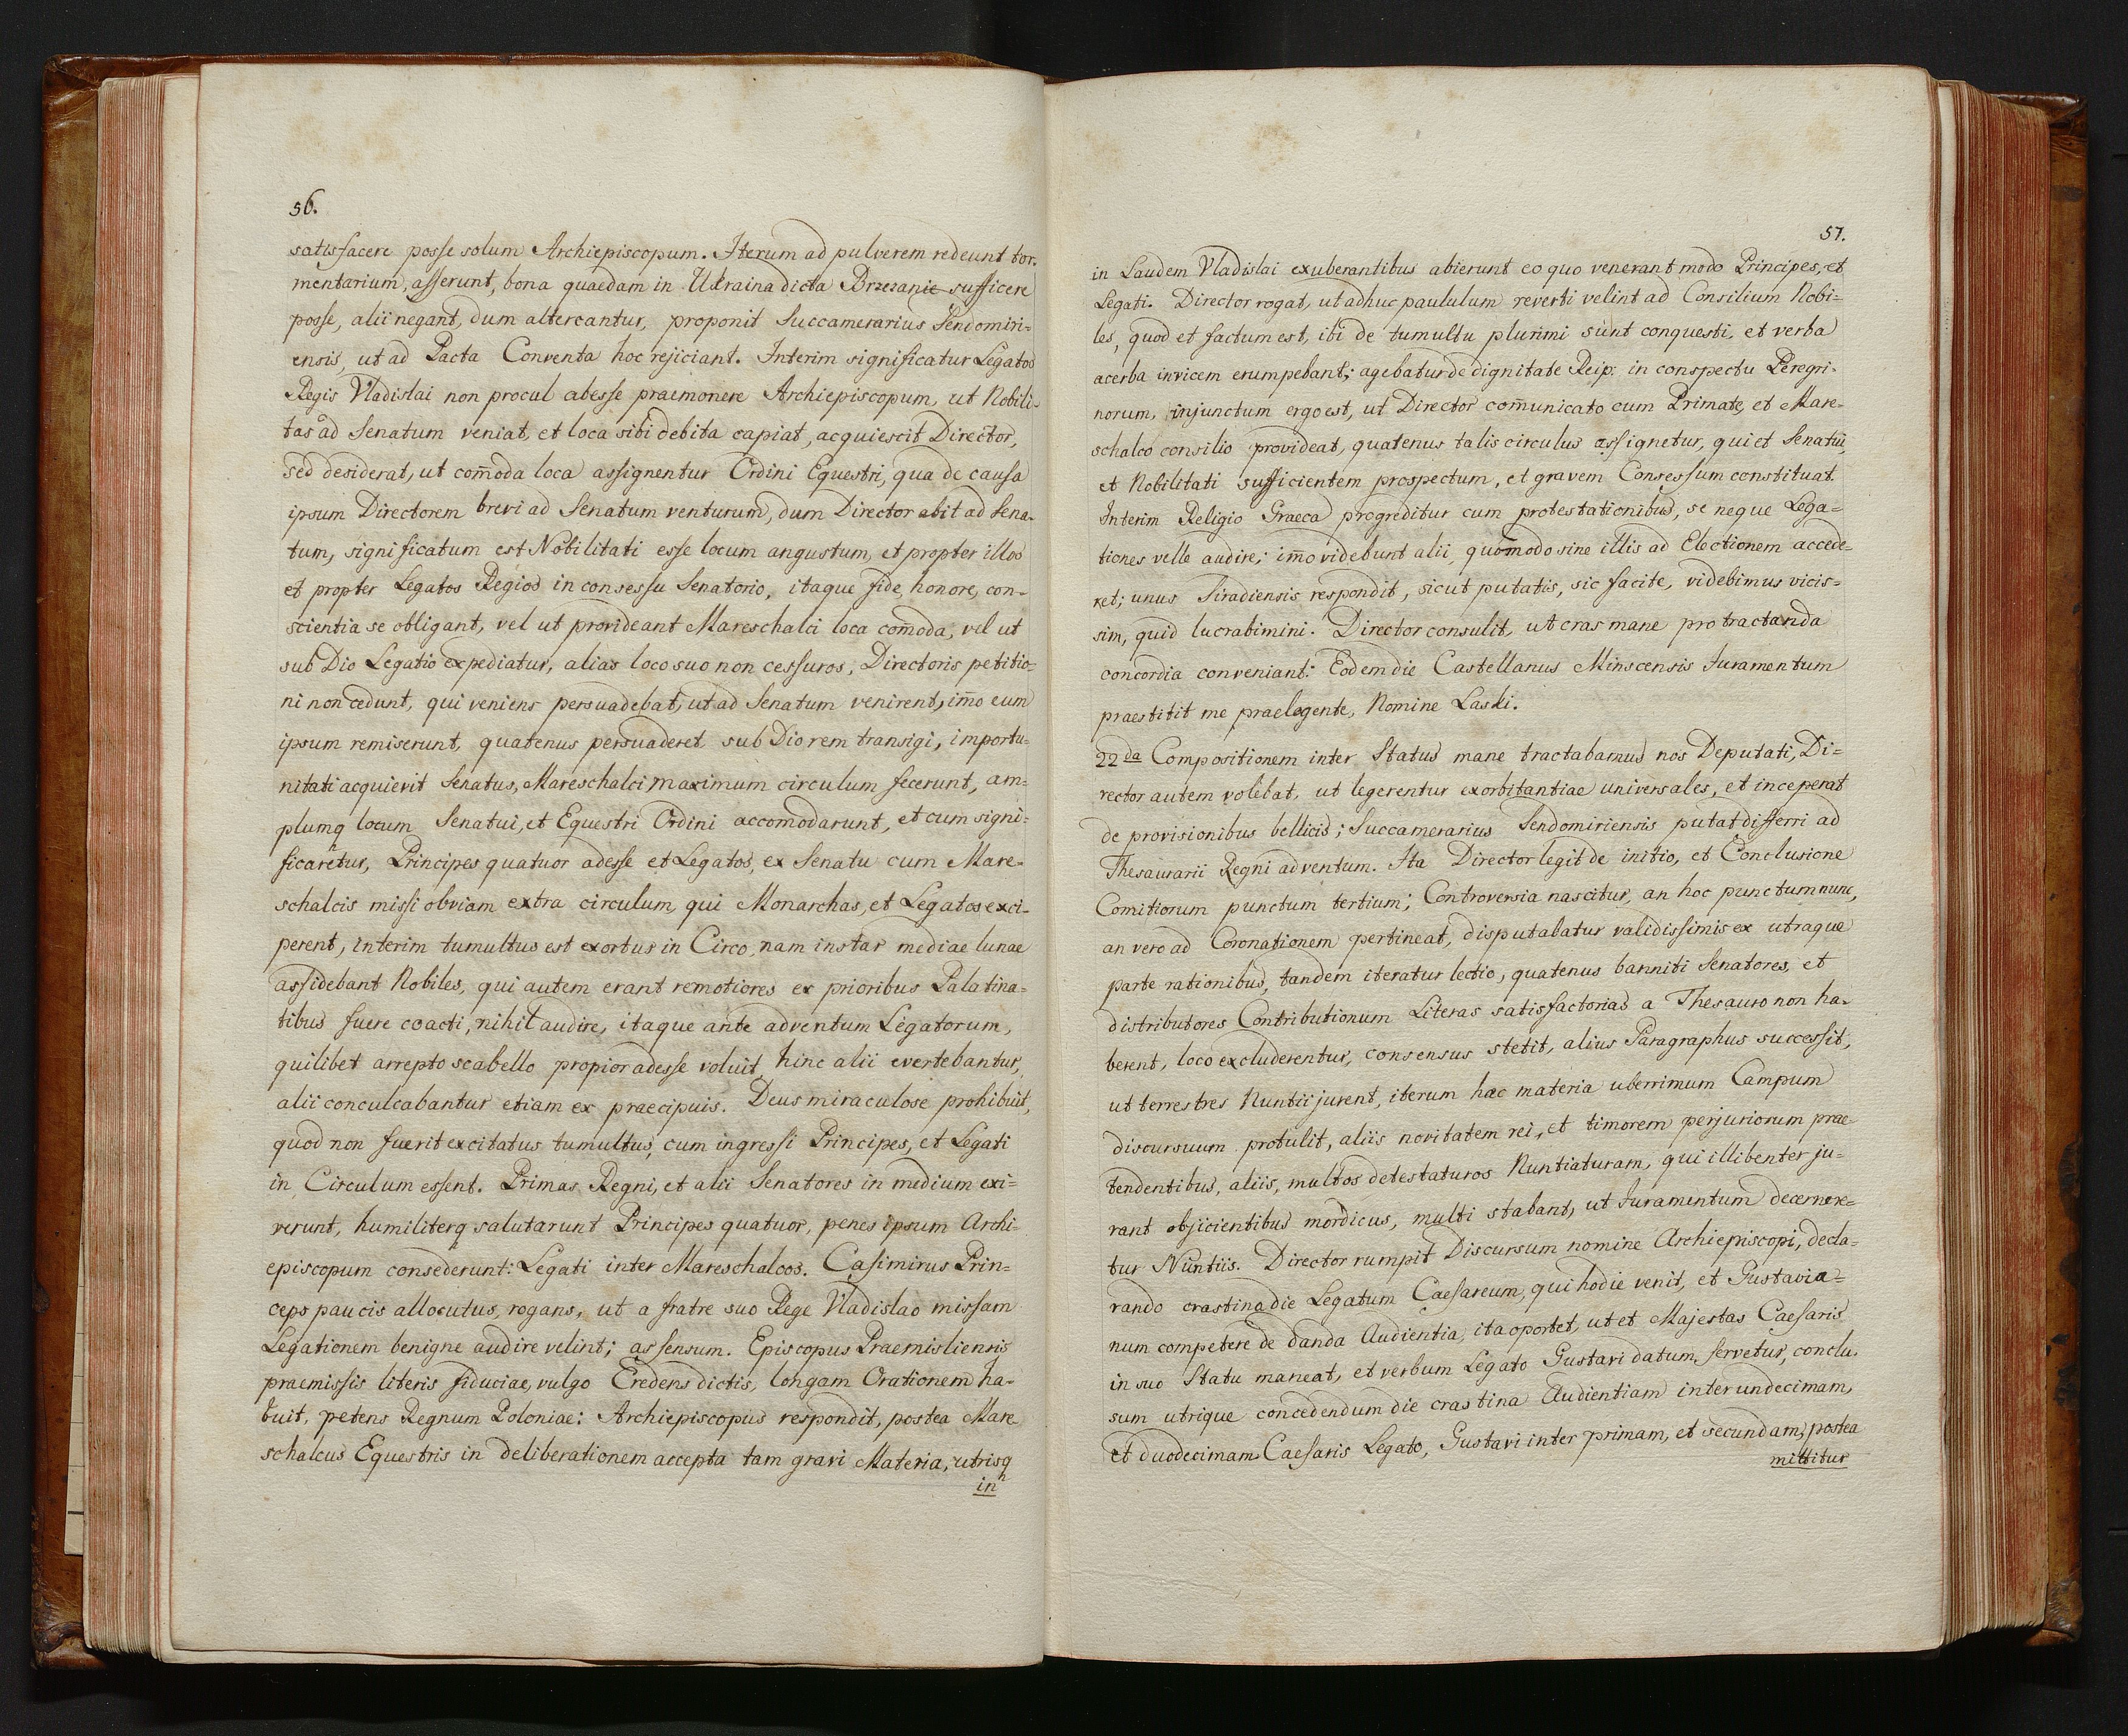 56.
satisfacere posse solum Archiepiscopum. Iterum ad pulverem redeunt tor-
mentarium, asserunt, bona quaedam in Ukraina dicta Brzezanie sufficere
posse, alii negant, dum altercantur, proponit Succamerarius Sendomiri-
ensis, ut ad Pacta Conventa hoc rejiciant. Interim significatur Legatos
Regis Vladislai non procul abesse praemonere Archiepiscopum, ut Nobili-
tas ad Senatum veniat, et loca sibi debita capiat, acquiescit Director,
sed desiderat, ut com̄oda loca assignentur Ordini Equestri, qua de causa
ipsum Directorem brevi ad Senatum venturum, dum Director abit ad Sena-
tum, significatum est Nobilitati esse locum angustum, et propter illos
et propter Legatos Regios in consessu Senatorio, itaque fide, honore, con-
scientia se obligant, vel ut provideant Mareschalci loca com̄oda, vel ut
sub Dio Legatio expediatur, alias loco suo non cessuros, Directoris petitio-
ni non cedunt, qui veniens persuadebat, ut ad Senatum venirent, im̄o eum
ipsum remiserunt, quatenus persuaderet sub Dio rem transigi, importu-
nitati acquievit Senatus, Mareschalci maximum circulum fecerunt, am-
plumq locum Senatui, et Equestri Ordini accomodarunt, et cum signi-
ficaretur, Principes quatuor adesse et Legatos, ex Senatu cum Mare-
schalcis missi obviam extra circulum, qui Monarchas, et Legatos exci-
perent, interim tumultus est exortus in Circo, nam instar mediae lunae
assidebant Nobiles, qui autem erant remotiores ex prioribus Palatina-
tibus fuere coacti, nihil audire, itaque ante adventum Legatorum,
quilibet arrepto scabello propior adesse voluit, hinc alii evertebantur,
alii conculcabantur etiam ex praecipuis. Deus miraculose prohibuit,
quod non fuerit excitatus tumultus, cum ingressi Principes, et Legati
in Circulum essent. Primas Regni, et alii Senatores in medium exi-
verunt, humiliterq salutarunt Principes quatuor, penes ipsum Archi-
episcopum consederunt: Legati inter Mareschalcos. Casimirus Prin-
ceps paucis allocutus, rogans, ut a fratre suo Rege Vladislao missam
Legationem benigne audire velint; assensum. Episcopus Praemisliensis
praemissis literis fiduciae, vulgo Credens dictis, longam Orationem ha-
buit, petens Regnum Poloniae: Archiepiscopus respondit, postea Mare
schalcus Equestris in deliberationem accepta tam gravi Materia, utrisq
in
57.
in Laudem Vladislai exuberantibus abierunt eo quo venerant modo Principes, et
Legati. Director rogat, ut adhuc paululum reverti velint ad Consilium Nobi-
les, quod et factum est, ibi de tumultu plurimi sunt conquesti, et verba
acerba invicem erumpebant; agebatur de dignitate Reip: in conspectu Peregri-
norum, injunctum ergo est, ut Director com̄unicato cum Primate, et Mare-
schalco consilio provideat, quatenus talis circulus assignetur, qui et Senatui,
et Nobilitati sufficientem prospectum, et gravem Consessum constituat.
Interim Religio Graeca progreditur cum protestationibus, se neque Lega-
tiones velle audire; im̄o videbunt alii, quomodo sine illis ad Electionem accede-
ret; unus Siradiensis respondit, sicut putatis, sic facite, videbimus vicis-
sim, quid lucrabimini. Director consulit, ut cras mane pro tractanda
concordia conveniant: Eodem die Castellanus Minscensis Juramentum
praestitit me praelegente, Nomine Laski.
22da Compositionem inter Status mane tractabamus nos Deputati, Di-
rector autem volebat, ut legerentur exorbitantiae universales, et inceperat
de provisionibus bellicis; Succamerarius Sendomiriensis putat differri ad
Thesaurarii Regni adventum. Ita Director legit de initio, et Conclusione
Comitiorum punctum tertium; Controversia nascitur, an hoc punctum nunc,
an vero ad Coronationem pertineat, disputabatur validissimis ex utraque
parte rationibus, tandem iteratur lectio, quatenus banniti Senatores, et
distributores Contributionum Literas satisfactorias a Thesauro non ha-
berent, loco excluderentur, consensus stetit, alius Paragraphus successit,
ut terrestres Nuntii jurent, iterum hac materia uberrimum Campum
discursuum protulit, aliis novitatem rei, et timorem perjuriorum prae-
tendentibus, aliis, multos detestaturos Nuntiaturam, qui illibenter ju-
rant objicientibus mordicus, multi stabant, ut Juramentum decernere-
tur Nuntiis. Director rumpit Discursum nomine Archiepiscopi, decla-
rando crastina die Legatum Caesareum, qui hodie venit, et Gustavia-
num competere de danda Audientia, ita oportet, ut et Majestas Caesaris
in suo Statu maneat, et verbum Legato Gustavi datum servetur, conclu-
sum utrique concedendum die crastina Audientiam inter undecimam,
et duodecimam Caesaris Legato, Gustavi inter primam, et secundam, postea
mittitur